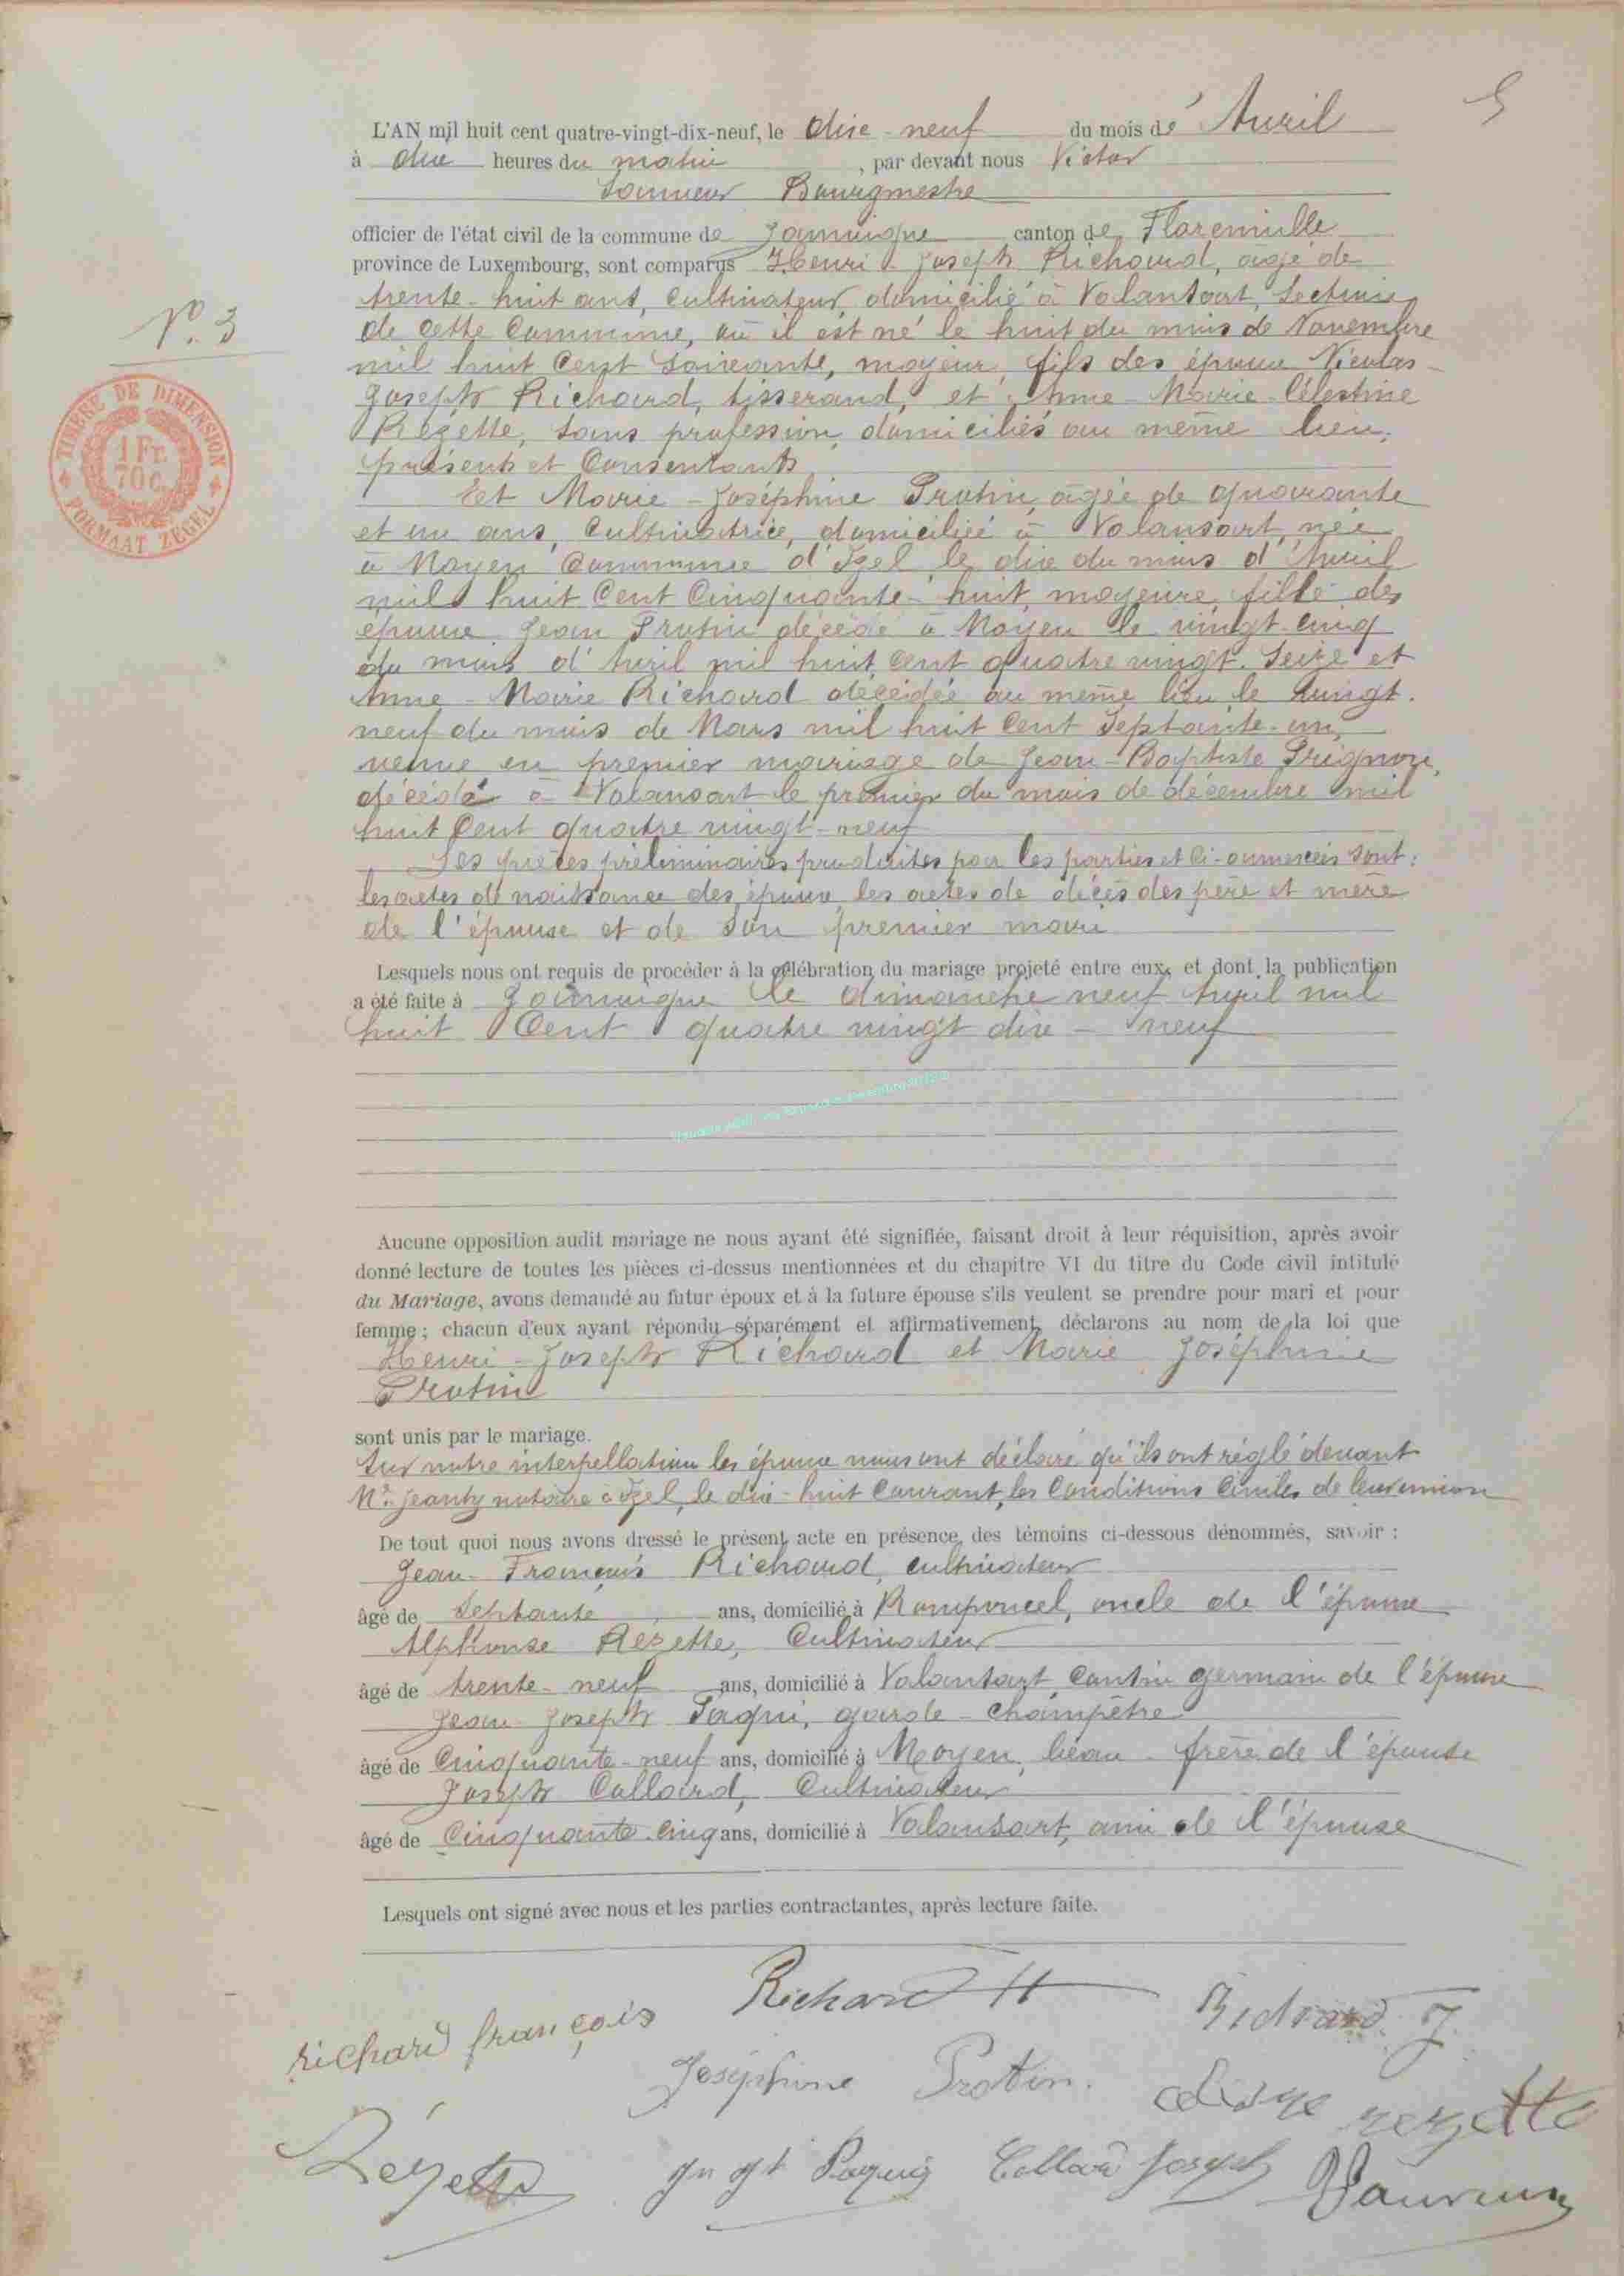 5
L'AN mil huit cent quatre-vingt-dix-neuf, le dixe-neuf du mois de Avril
à dix heures du matin, par devant nous Victor
Bourgmestre
officier de l'état civil de la commune de Jamoigne canton de Florenville
province de Luxembourg, sont comparus Henri-Joseph Richard, âgé de
trente-huit ans, Cultivateur, domicilié à Valansart, Section
N°. 3
de cette Commune, où il est né le huit du mois de Novembre
mil huit Cent soixante, majeur, fils des époux Nicolas-
Joseph Richard, tisserand, et Anne-Marie-Célestine
Rézette, sans profession, domiciliés au même lieu,
présents et Consentants
Et Marie-Joséphine Protin, âgée de quarante
et un ans, Cultivatrice, domiciliée à Valansart, née
à Moyen Commune d'Izel, le dix du mois d'Avril
mil huit Cent Cinquante-huit, majeure, fille des
époux Jean Protin décédé à Moyen le vingt-cinq
du mois d'Avril mil huit Cent quatre vingt-Seize et
Anne-Marie Richard décédée au même lieu le vingt-
neuf du mois de Mars mil huit Cent Septante-un,
veuve en premier mariage de Jean-Baptiste Guignon,
décédé à Valansart le premier du mois de décembre mil
huit Cent quatre vingt-neuf
Les pièces préliminaires produites par les parties et ci-annexées sont:
les actes de naissance des époux, les actes de décès des père et mère
de l'épouse et de son premier mari
Lesquels nous ont requis de procéder à la célébration du mariage projeté entre eux, et dont la publication
a été faite à Jamoigne le dimanche neuf Avril mil
huit Cent quatre vingt dix-neuf
Aucune opposition audit mariage ne nous ayant été signifiée, faisant droit à leur réquisition, après avoir
donné lecture de toutes les pièces ci-dessus mentionnées et du chapitre VI du titre du Code civil intitulé
du Mariage, avons demandé au futur époux et à la future épouse s'ils veulent se prendre pour mari et pour
femme; chacun d'eux ayant répondu séparément et affirmativement, déclarons au nom de la loi que
Henri-Joseph Richard et Marie Joséphine
Protin
sont unis par le mariage.
Sur notre interpellation les époux nous ont déclaré qu'ils ont réglé devant
Mr. Jeanty notaire à Izel, le dix-huit Courant, les Conditions Civiles de leur union
De tout quoi nous avons dressé le présent acte en présence des témoins ci-dessous dénommés, savoir :
Jean-François Richard, cultivateur
âgé de Septante ans, domicilié à Romponcel, oncle de l'épouse
Alphonse Rézette, Cultivateur
âgé de trente-neuf ans, domicilié à Valansart, Cousin germain de l'époux
Jean-Joseph Paquis, garde-champêtre
âgé de Cinquante-neuf ans, domicilié à Moyen, beau-frère de l'épouse
Joseph Collard, Cultivateur
âgé de Cinquante-Cinq ans, domicilié à Valansart, ami de l'épouse
Lesquels ont signé avec nous et les parties contractantes, après lecture faite.
Richard H
richard françois
Richard J
Joséphine Protin.
rezette
Rézette
Jn Jh Paquis
Collard Joseph
TIMBRE DE DIMENSION
1 FR.
70 C.
FORMAAT ZEGEL